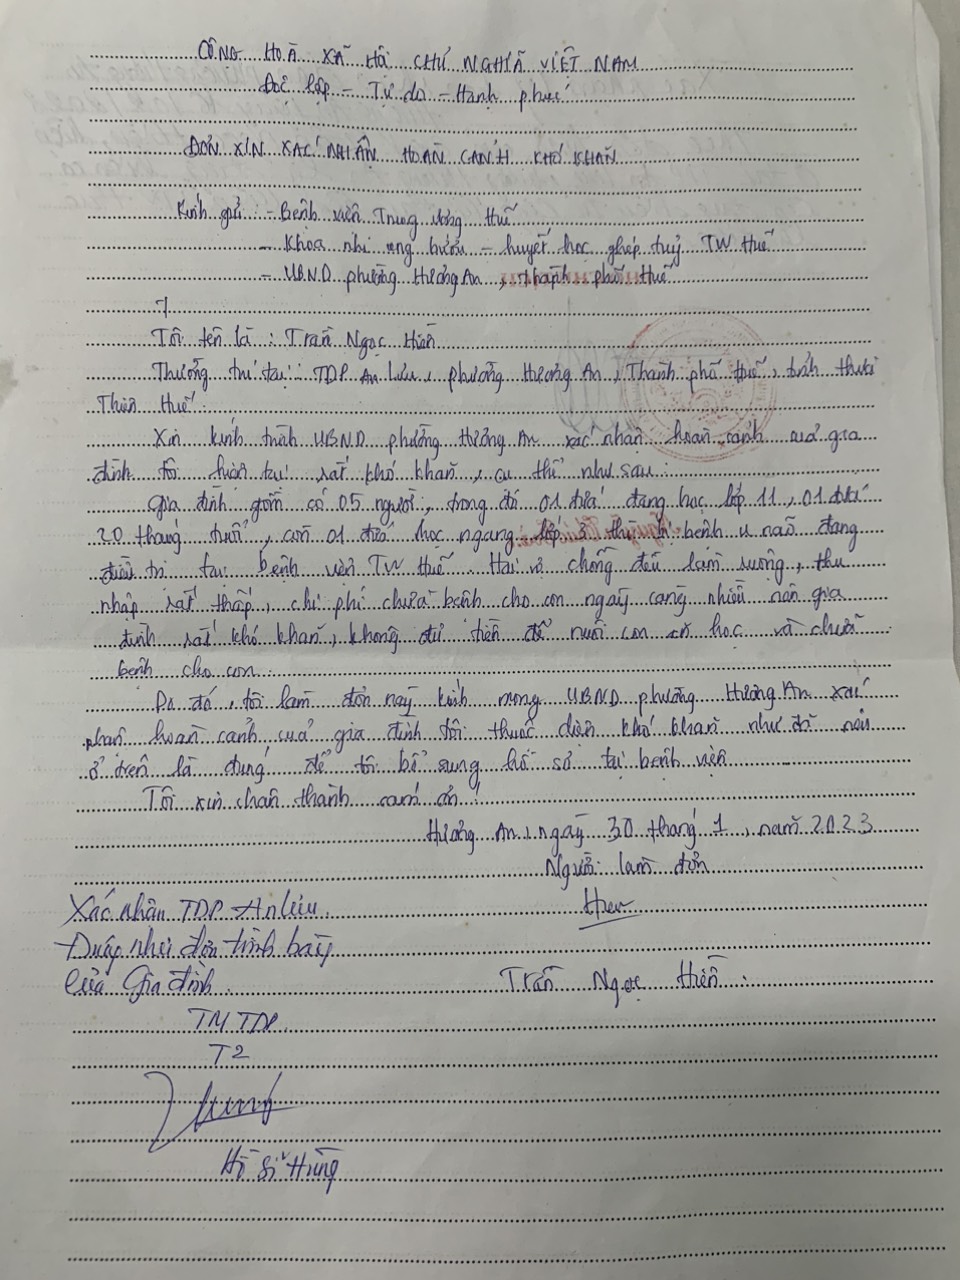 CỘNG HOÀ XÃ HỘI CHỦ NGHĨA VIỆT NAM
Độc lập - Tự do - Hạnh phúc
ĐƠN XIN XÁC NHẬN HOÀN CẢNH KHÓ KHĂN
Kính gửi: - Bệnh viện Trung ương Huế
- Khoa nhi ung bướu - huyết học ghép tuỷ TW Huế
- U.B.N.D phường Hương An, thành phố Huế
Tôi tên là: Trần Ngọc Hiền
Thường trú tại: TDP An Lưu, phường Hương An, Thành phố Huế, tỉnh thừa
Thiên Huế.
Xin kính trình U.B.N.D phường Hương An xác nhận hoàn cảnh của gia
đình tôi hiện tại rất khó khăn, cụ thể như sau:
Gia đình gồm có 05 người, trong đó 01 đứa đang học lớp 11, 01 đứa
20 tháng tuổi, còn 01 đứa học ngang lớp 3 thì bị bệnh u não đang
điều trị tại bệnh viện TW Huế. Hai vợ chồng đều làm ruộng, thu
nhập rất thấp, chi phí chữa bệnh cho con ngày càng nhiều nên gia
đình rất khó khăn, không đủ tiền để nuôi con ăn học và chữa
bệnh cho con.
Do đó, tôi làm đơn này kính mong U.B.N.D phường Hương An xác
nhận hoàn cảnh của gia đình tôi thuộc diện khó khăn như đã nêu
ở trên là đúng để tôi bổ sung hồ sơ tại bệnh viện
Tôi xin chân thành cảm ơn!
Hương An, ngày 30 tháng 1, năm 2023
Người làm đơn
Hiền
Xác nhận TDP An Lưu
Đúng như đơn trình bày
Của Gia đình.
Trần Ngọc Hiền
TM TDP
T2
Hùng
Hồ Sĩ Hùng